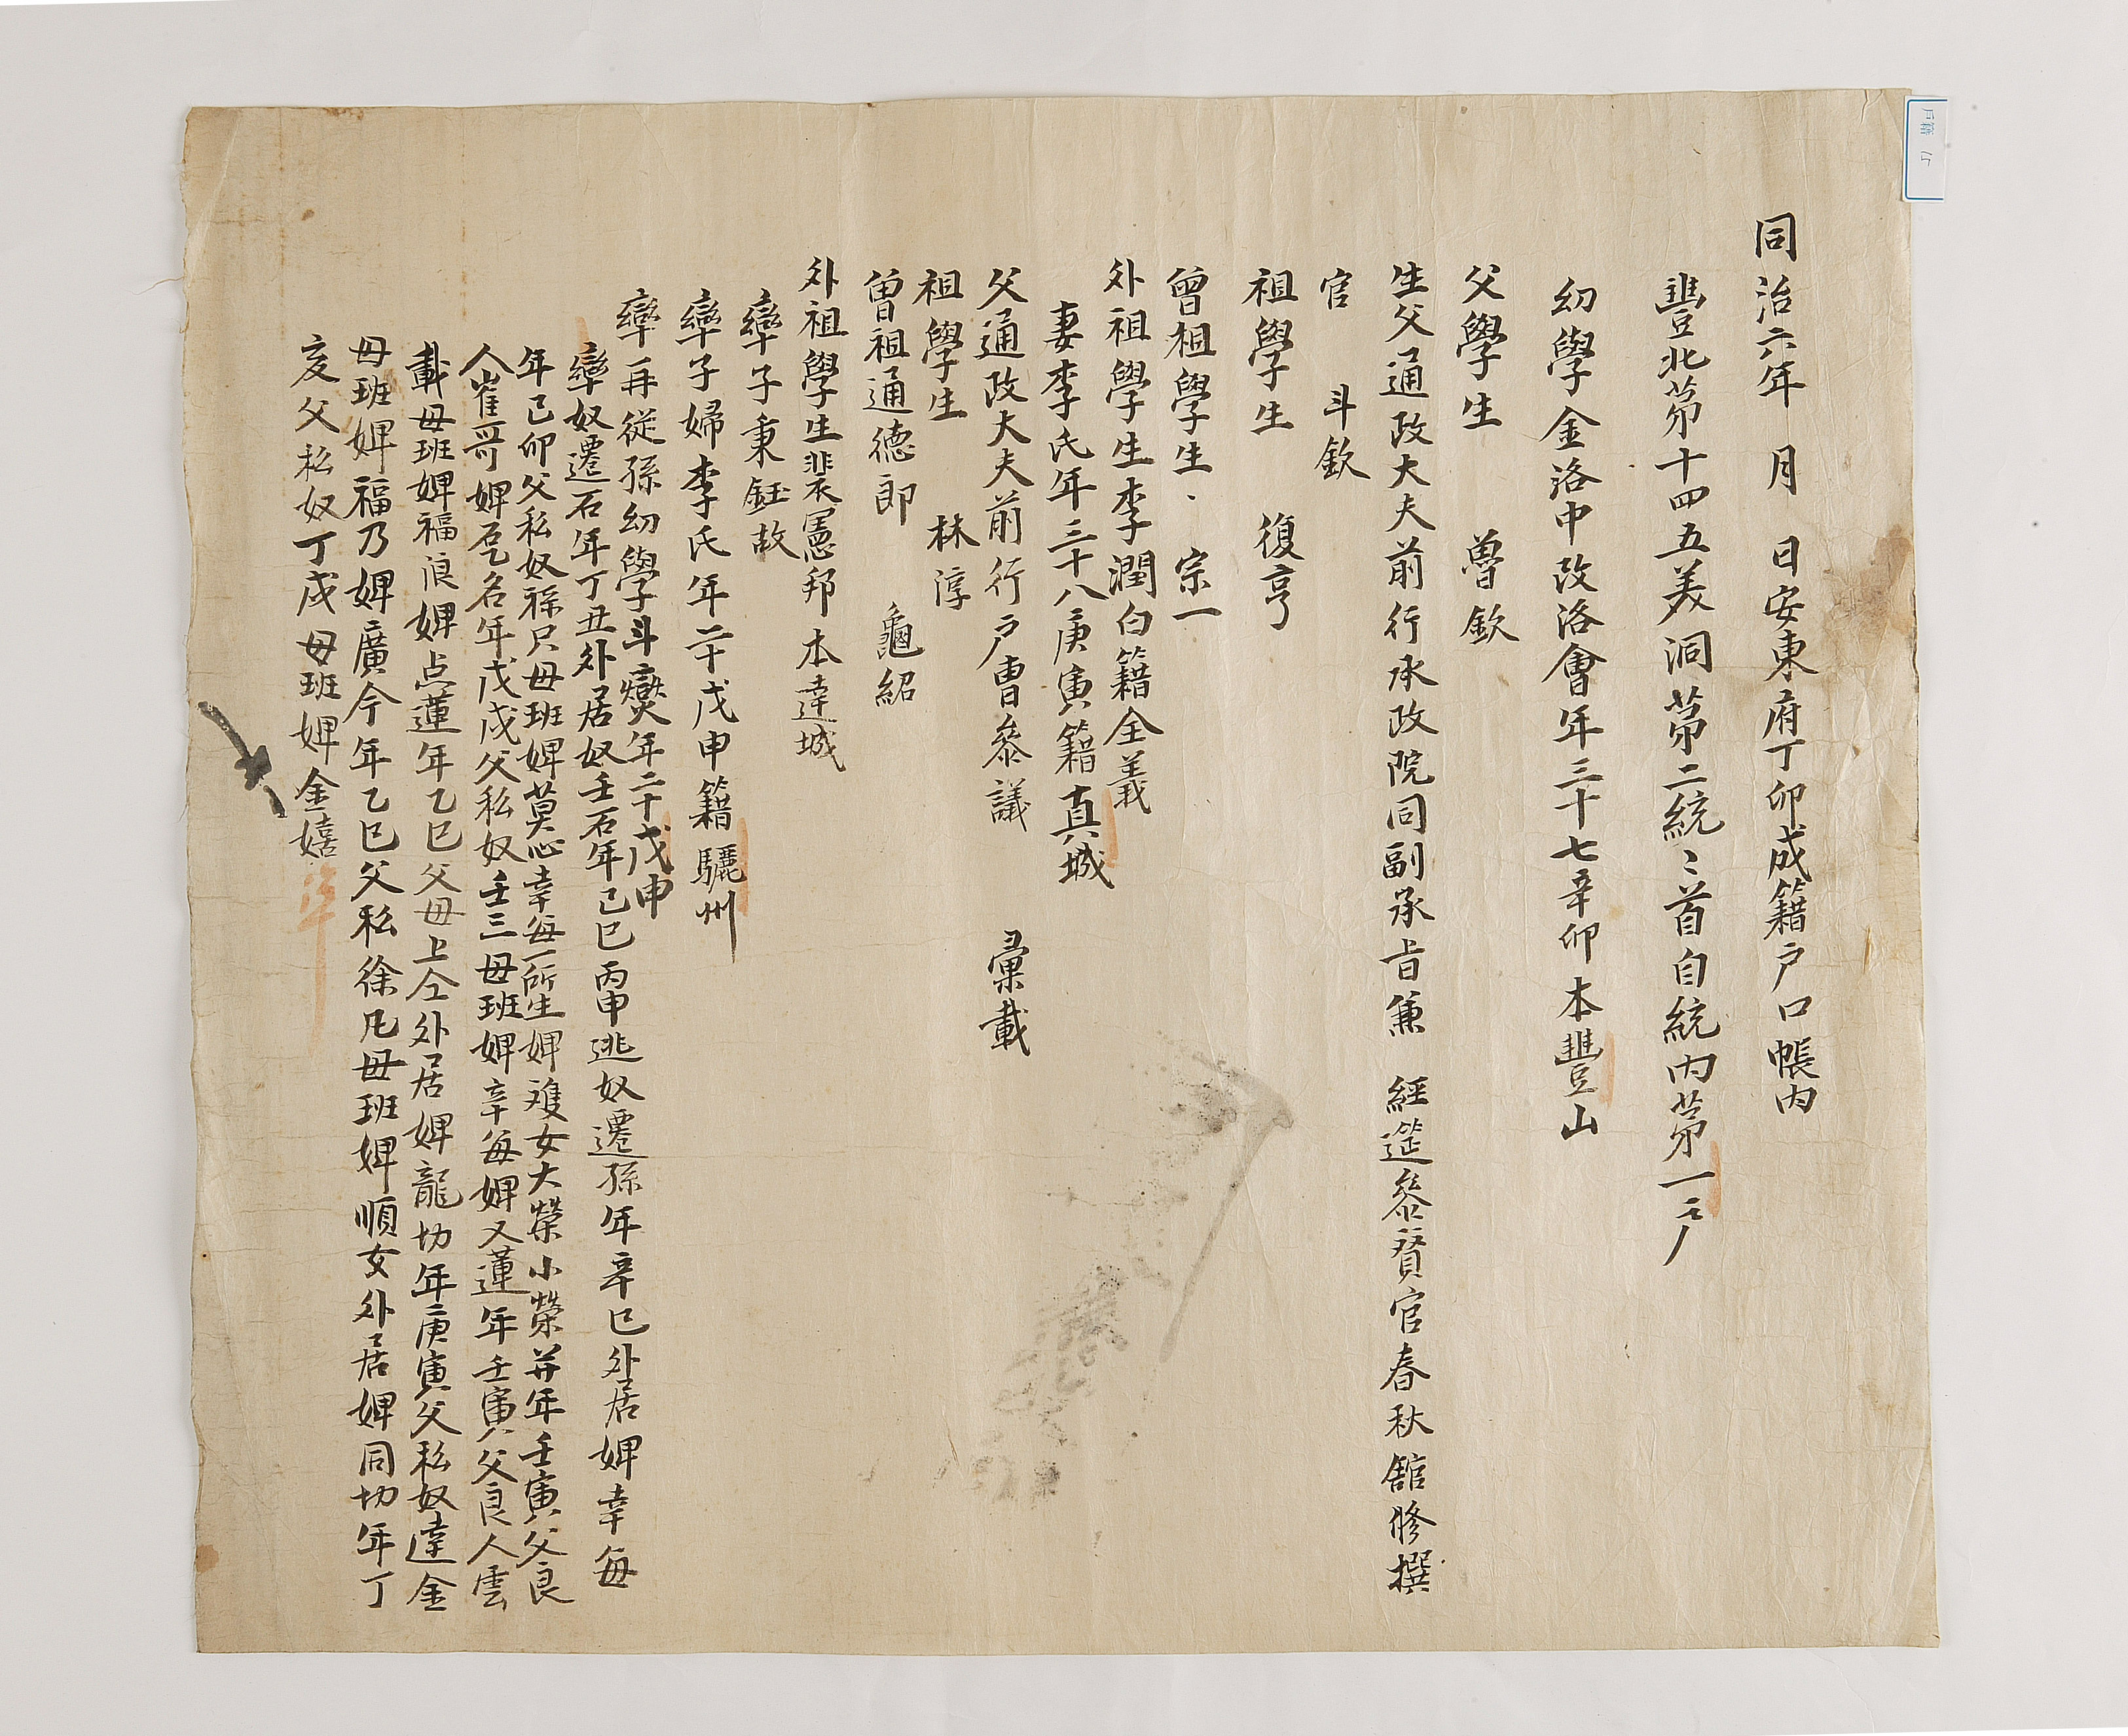 戶籍 15
同治六年 月 日安東府丁卯成籍戶口帳內
豊北第十四五美洞第二統〻首自統內第一戶
幼學金洛中改洛會年三十七辛卯本豊山
父學生 魯欽
生父通政大夫前行承政院同副承旨兼 經筵參贊官春秋館修撰
官 斗欽
祖學生 復亨
曾祖學生 宗一
外祖學生李潤白籍全義
妻李氏年三十八庚寅籍真城
父通政大夫前行戶曹參議 彙載
祖學生 林淳
曾祖通德郎 龜紹
外祖學生裴憲邦本達城
率子秉鈺故
率子婦李氏年二十戊申籍驪州
率再從孫幼學斗燮年二十戊申
率奴遷石年丁丑外居奴壬石年己巳丙申逃奴遷孫年辛巳外居婢幸每
年己卯父私奴祿只母班婢莫心幸每一所生婢女大榮小榮并年壬寅父良
人崔哥婢名年戊戌父私奴壬三母班婢辛每婢又蓮年壬寅父良人雲
載母班婢福浪婢点蓮年乙巳父母上仝外居婢龍切年庚寅父私奴達金
母班婢福乃婢廣今年乙巳父私徐凡母班婢順女外居婢同切年丁
亥父私奴丁戌母班婢金嬉
準